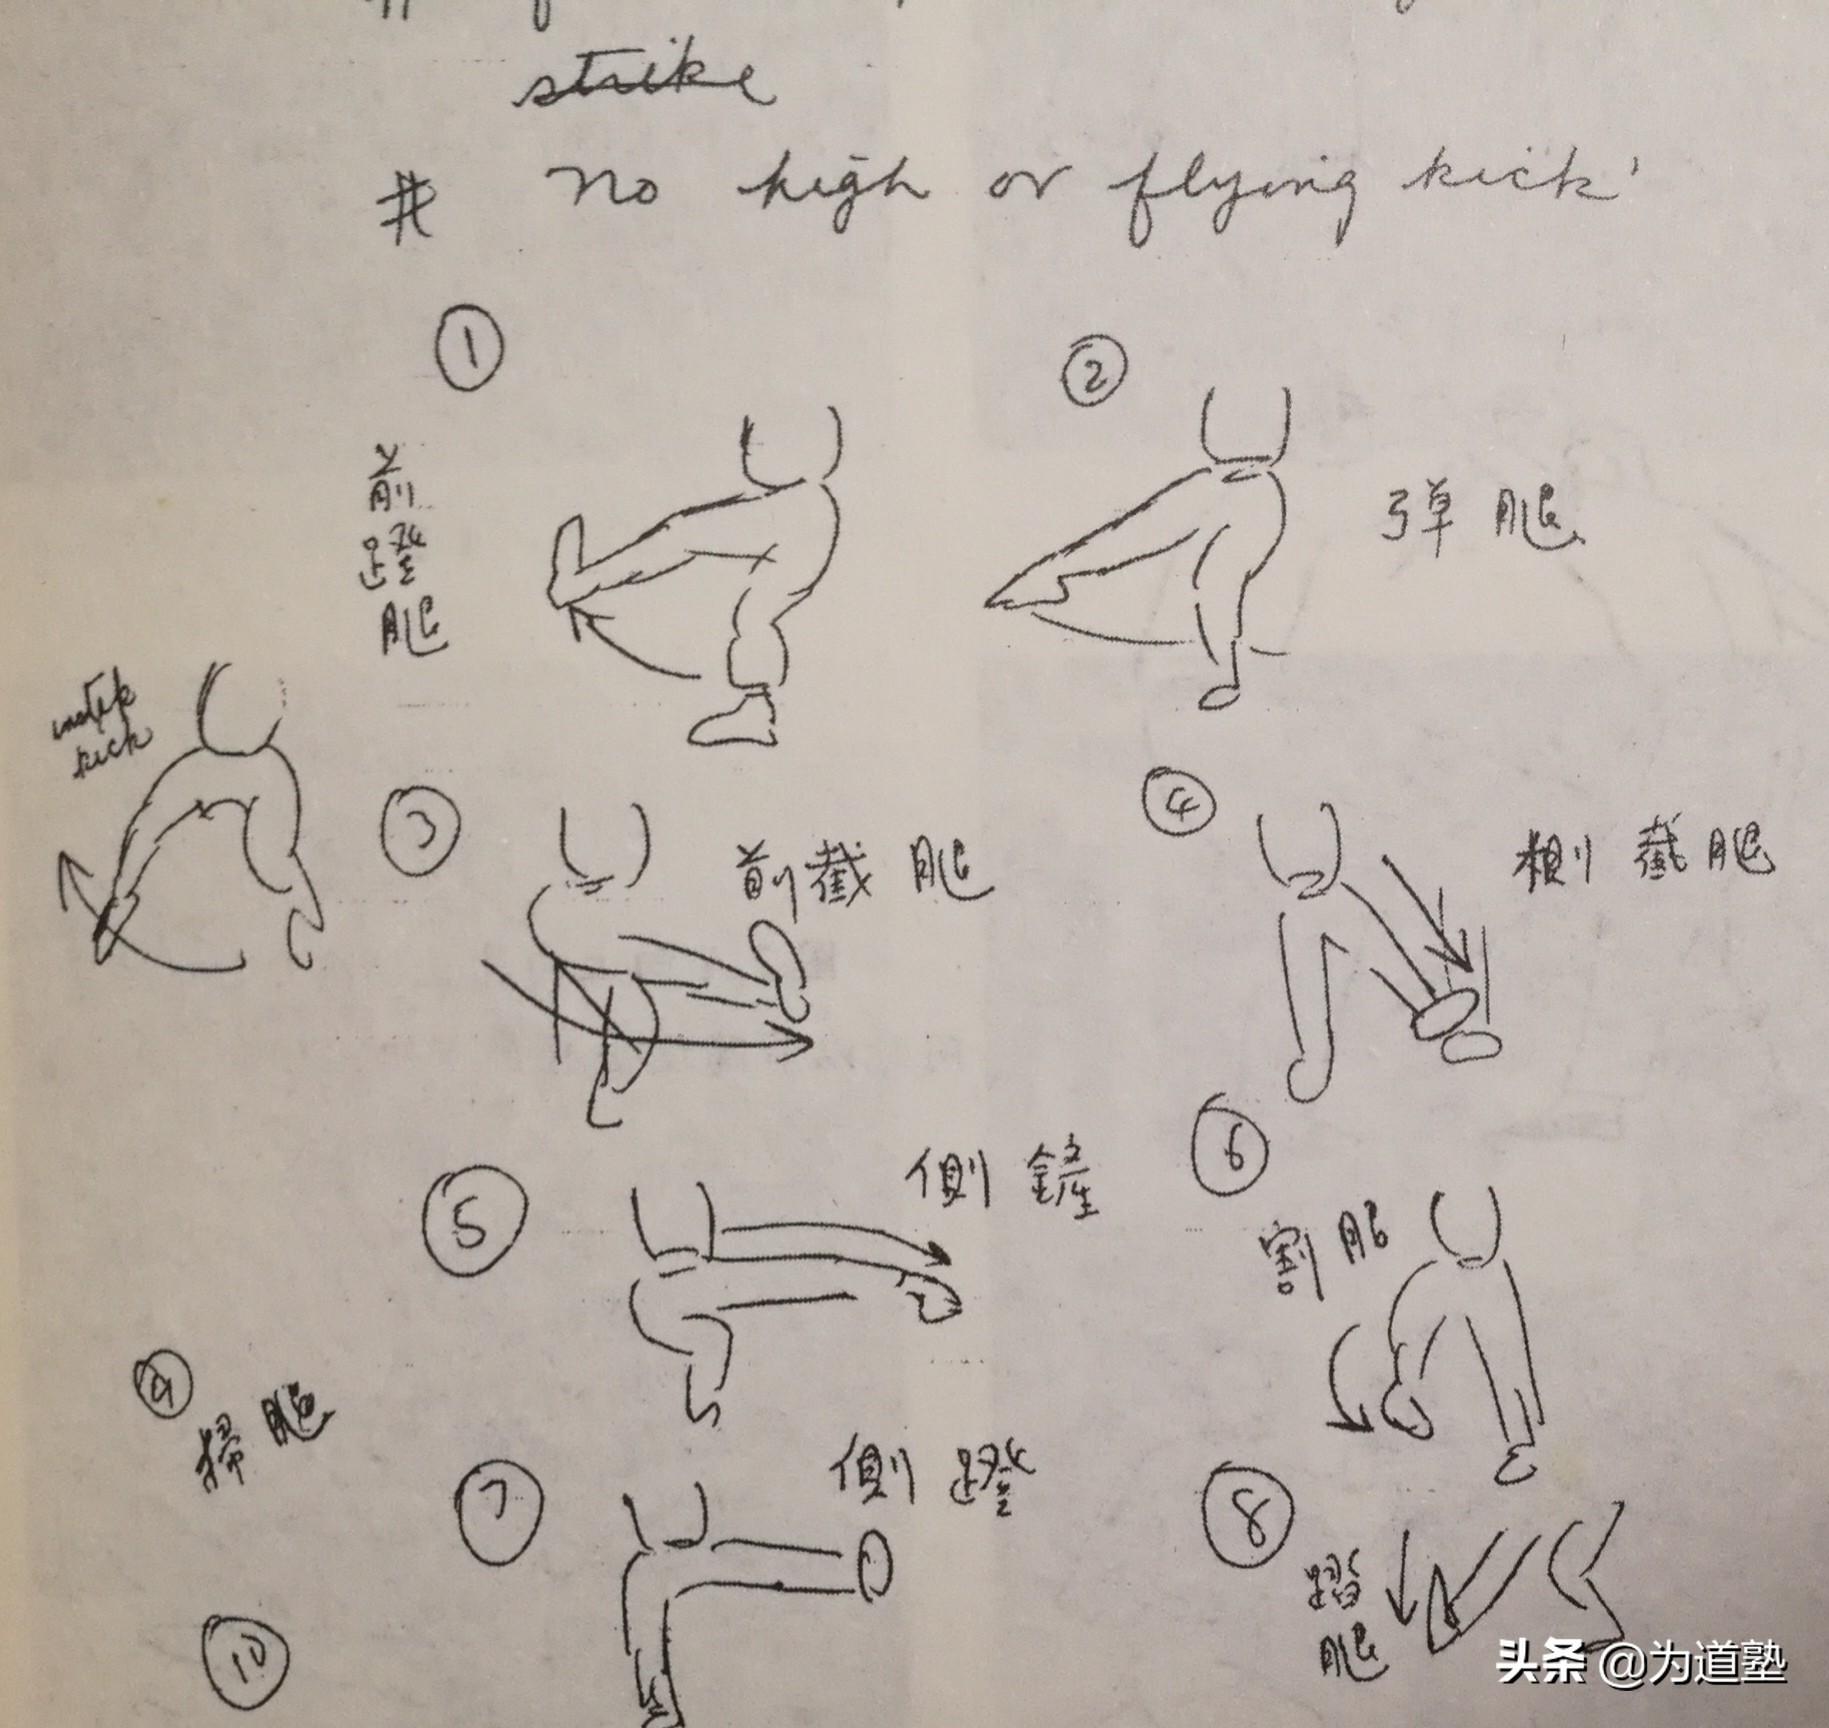 strike
# No high or flying kick'
①
②
前蹬腿
弹腿
instep
kick
③
前截腿
④
側截腿
⑤
側鏟
⑥
割腿
⑨
掃腿
⑦
側蹬
⑧
踏腿
⑩
头条 @为道塾